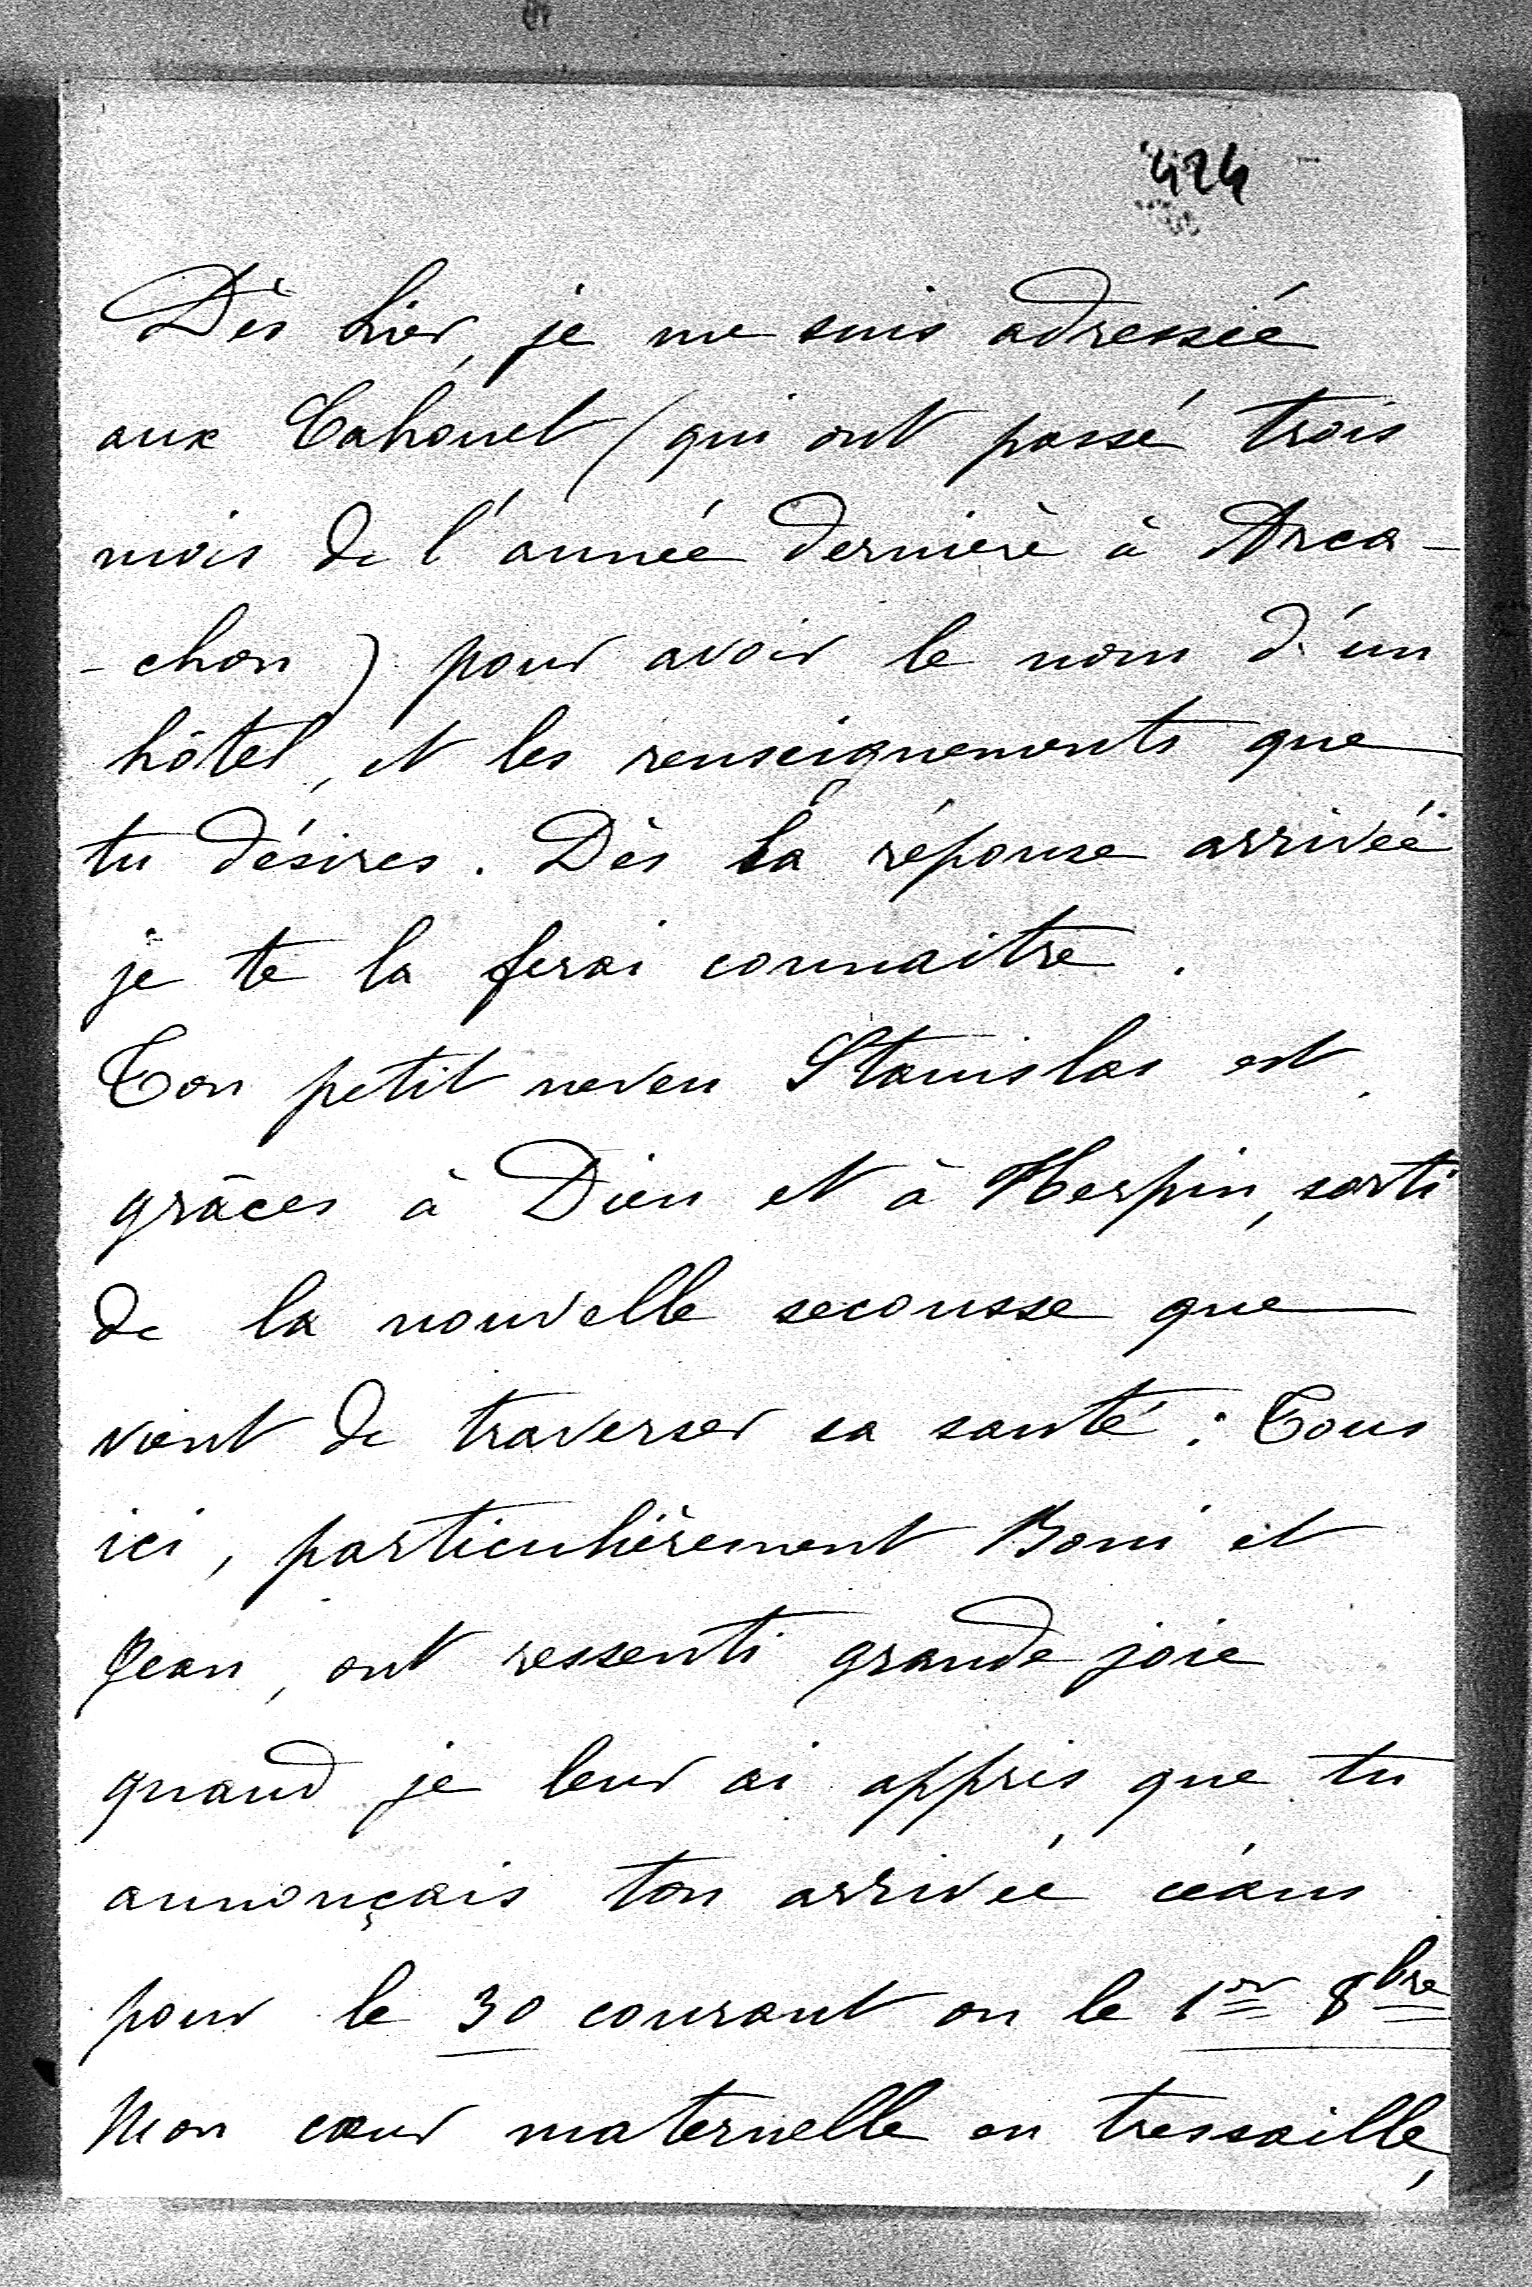 424
Dès hier, je me suis adressée
aux Cahouet (qui ont passé trois
mois de l'année dernière à Arca-
-chon) pour avoir le nom d'un
hôtel, et les renseignements que
tu désires. Dès la réponse arrivée
je te la ferai connaitre.
Ton petit neveu Stanislas est,
grâces à Dieu et à Herpin, sorti
de la nouvelle secousse que
vient de traverser sa santé : Tous
ici, particulièrement Boni et
Jean, ont ressenti grande joie
quand je leur ai appris que tu
annonçais ton arrivée céans
pour le 30 courant ou le 1er 8bre
Mon cœur maternelle en tressaille,